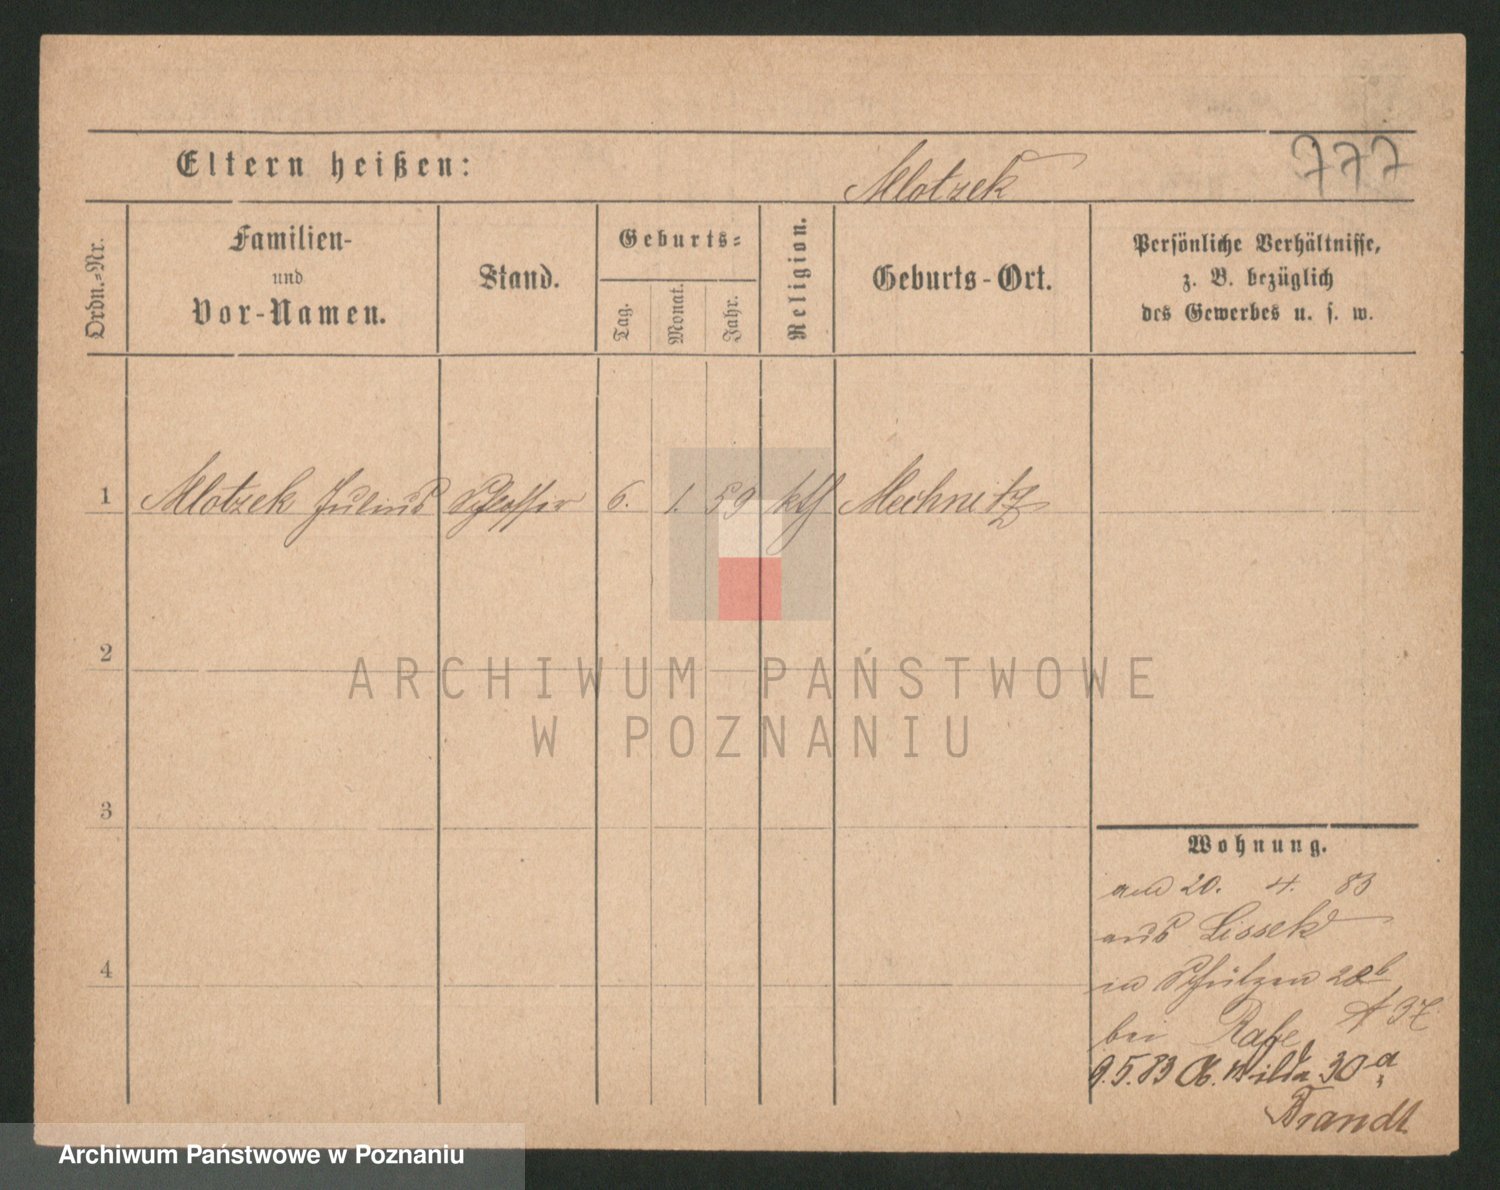 Eltern heißen:
Mlotzek
777
Ordn.-Nr.
Familien-
und
Vor-Namen.
Stand.
Geburts-
Tag.
Monat.
Jahr.
Religion.
Geburts-Ort.
Persönliche Verhältnisse,
z. B. bezüglich
des Gewerbes u. s. w.
1 Mlotzek Julius Schlosser 6. 1. 59 kth Mechnitz
2
3
4
Wohnung.
am 20. 4. 83
aus Lissek
in Schützen 20b
bei
9.5.83 O. Wilda 30a
Brandt
ARCHIWUM PAŃSTWOWE
W POZNANIU
Archiwum Państwowe w Poznaniu